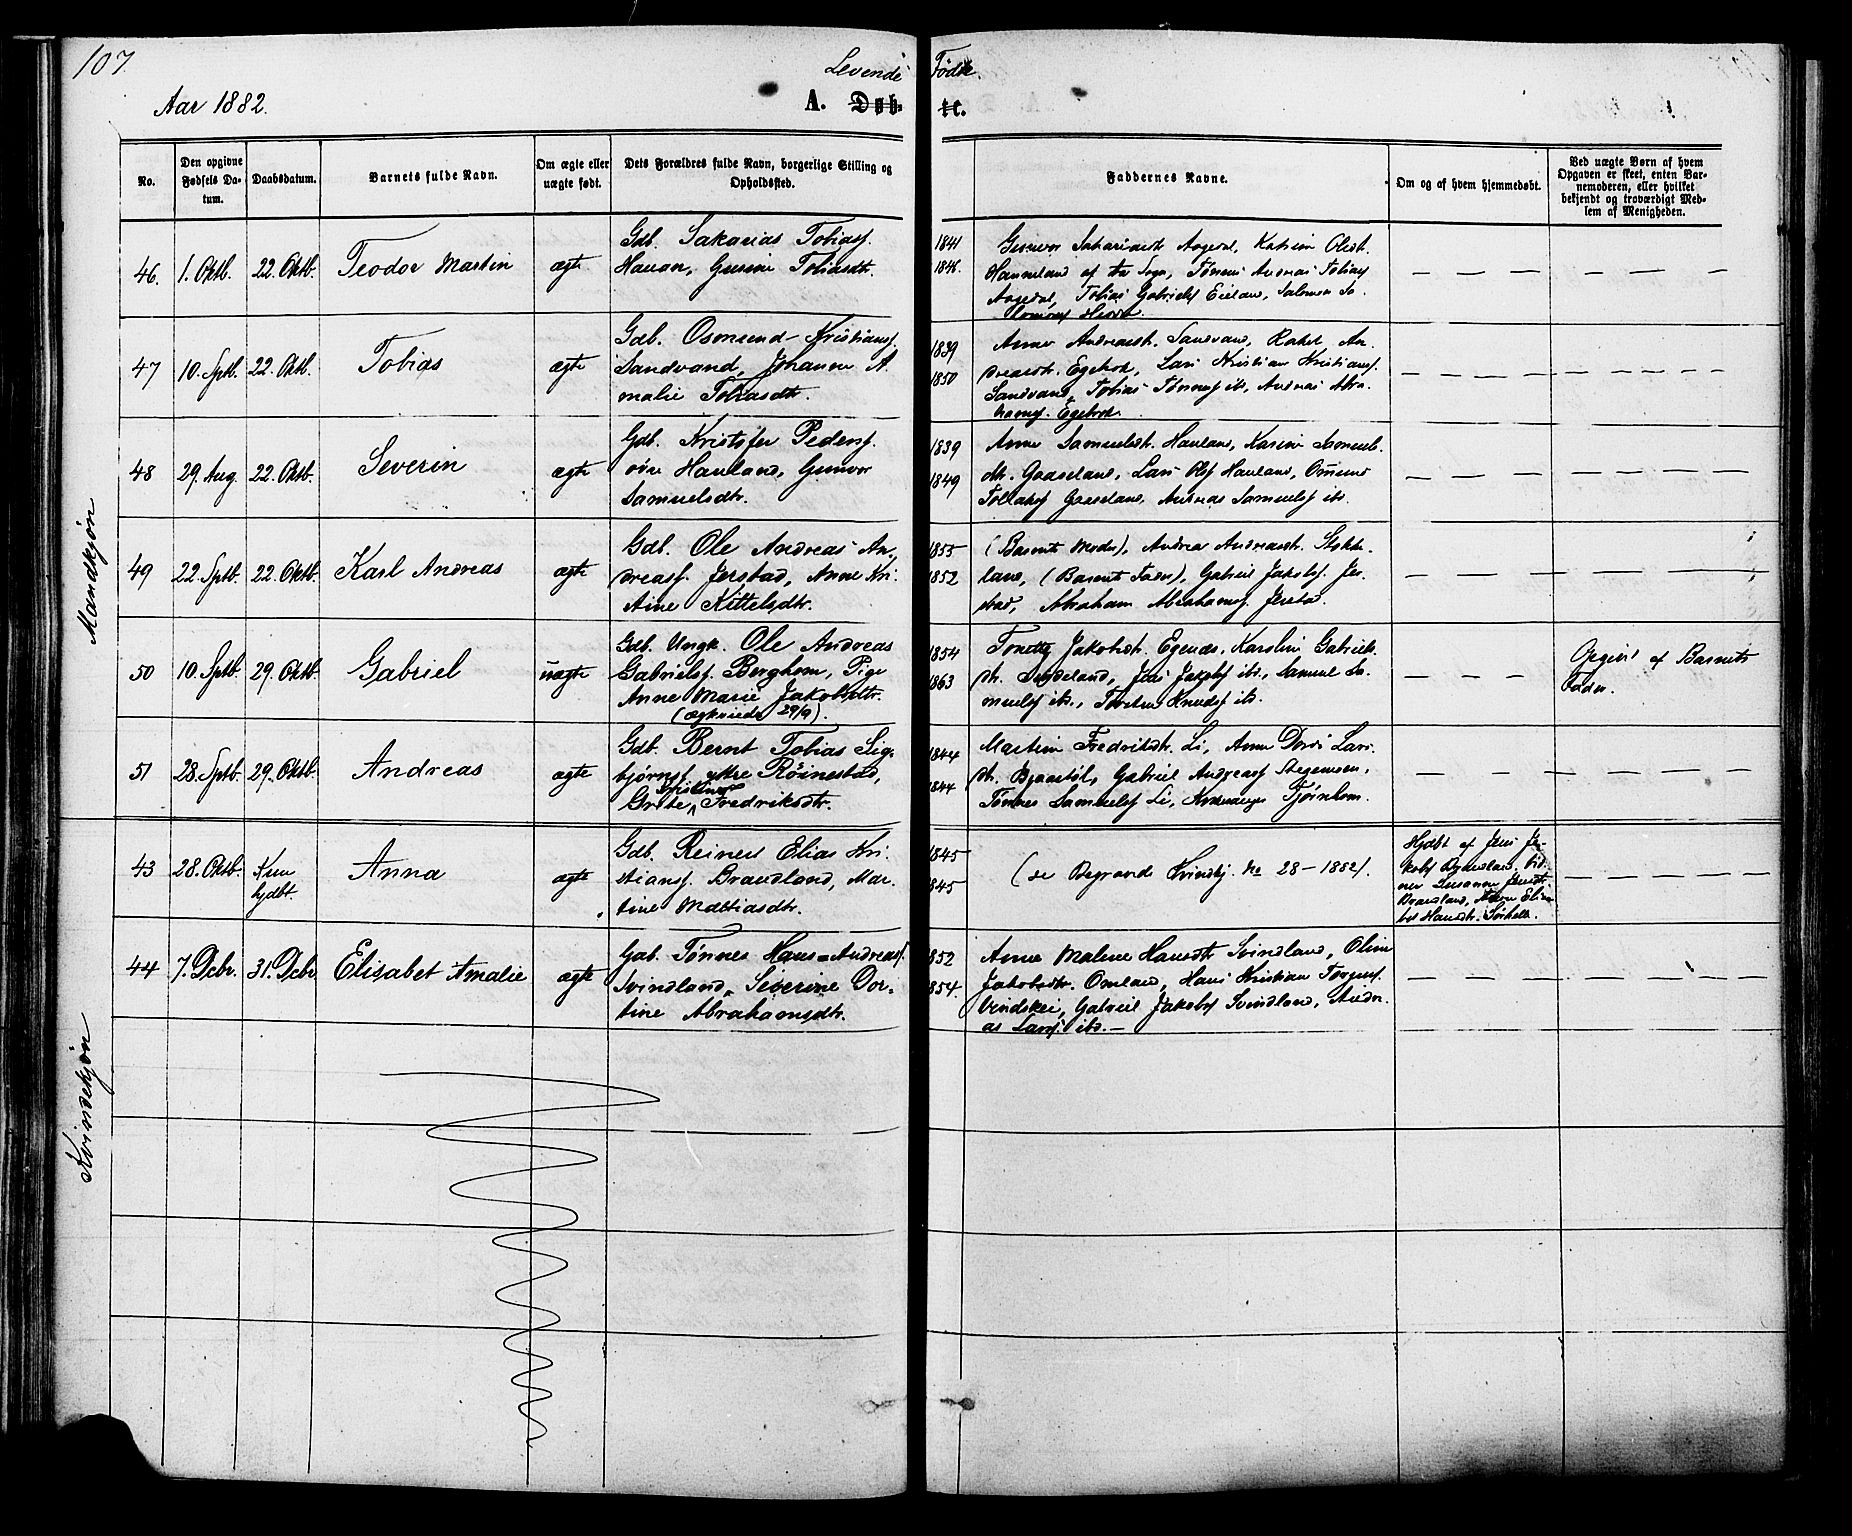 107.
Levende Fødte.
Aar 1882.
A. Døb- te.
No.
Den opgivne Fødsels Da- tum.
Daabsdatum.
Barnets fulde Navn.
Om ægte eller uægte født.
Dets Forældres fulde Navn, borgerlige Stilling og Opholdssted.
Faddernes Navne.
Om og af hvem hjemmedøbt.
Ved uægte Børn af hvem Opgaven er skeet, enten Bar- nemoderen, eller hvilket bekjendt og troværdigt Med- lem af Menigheden.
Mandkjøn
46. 1. Oktb. 22. Oktb. Teodor Martin ægte
Gdb. Sakarias Tobiasf.
Hauan, Gurine Tobiasdtr.
1841
1846.
Aagedal, Katrine Olsdt.
Hanneland af Sogn, Tønnes Andreas Tobiasf
Aagedal, Tobias Gabrielsf Eieland, Salomon Sa-
lomonsf
47 10. Sptb. 22. Oktb. Tobias ægte
Gdb. Osmund Kristiansf.
Sandvand, Johanne A-
malie Tobiasdtr.
1839
1850
Anne Andreasdt. Sandvand, Rakel An-
dreasdt. Egebok, Lars Kristian Kristiansf.
Sandvand, Tobias Tønnesf ibs, Andreas Abra-
hamsf. Egebok.
48 29. Aug. 22. Oktb. Severin ægte
Gdb. Kristofer Pedersf.
øvre Hauland, Gunvor
Samuelsdtr.
1839
1849
Anne Samuelsdt. Hauland, Karine Samuels-
dtr. Gaaseland, Lars Olsf Hauland, Osmund
Tollaksf Gaaseland, Andreas Samuelsf ibs.
49 22. Sptb. 22. Oktb. Karl Andreas ægte
Gdb. Ole Andreas An-
dreasf. Jerstad, Anne Kri-
stine Kittelsdtr.
1855
1852
(Barnets Moder), Andrea Andreasdt. Stokke-
land, (Barnets Fader), Gabriel Jakobsf. Jer-
stad, Abraham Abrahamsf. Jerstad.
50 10. Sptb. 29. Oktb. Gabriel uægte
Gdb. Ungk. Ole Andreas
Gabrielsf. Berghom, Pige
Anne Marie Jakobsdtr.
(ægteviede 29/9).
1854
1863
Tonette Jakobsdt. Egenes, Karoline Gabriels-
dt. Jakobsf ibs., Samuel Sa-
muelsf ibs., Torsten Knudsf ibs.
Opgivet af Barnets
Fader.
51 28. Sptb. 29. Oktb. Andreas ægte
Gdb. Bernt Tobias Sig-
bjørnsf. ytre Röinestad,
Kristine
Grete Fredriksdtr.
1844
1844
Martine Fredriksdt. Li, Anne Lars-
dt. Gabriel Andreasf Stegemoen,
Tønnes Samuelsf Li, Tjørnhom.
Kvindekjøn
43 28. Oktb. Kun
hjdbt. Anna ægte
Gdb. Reinert Elias Kri-
stiansf. Brandsland, Mar-
tine Mattiasdtr.
1845
1845
(se Begravede Kvindkj. No 28 - 1882).
Hjdbt af Jens Ja-
kobsf
ner Susanne Jensdt.
44 7. Dcbr. 31. Dcbr Elisabet Amalie ægte
Gdb. Tønnes Hans Andreasf.
Svindland, Severine Dor-
tine Abrahamsdtr.
1852
1854.
Anne Malene Hansdtr Svindland, Oline
Jakobsdtr. Omland, Hans Kristian
Gabriel Jakobsf Svindland, Andre-
as Larsf ibs.